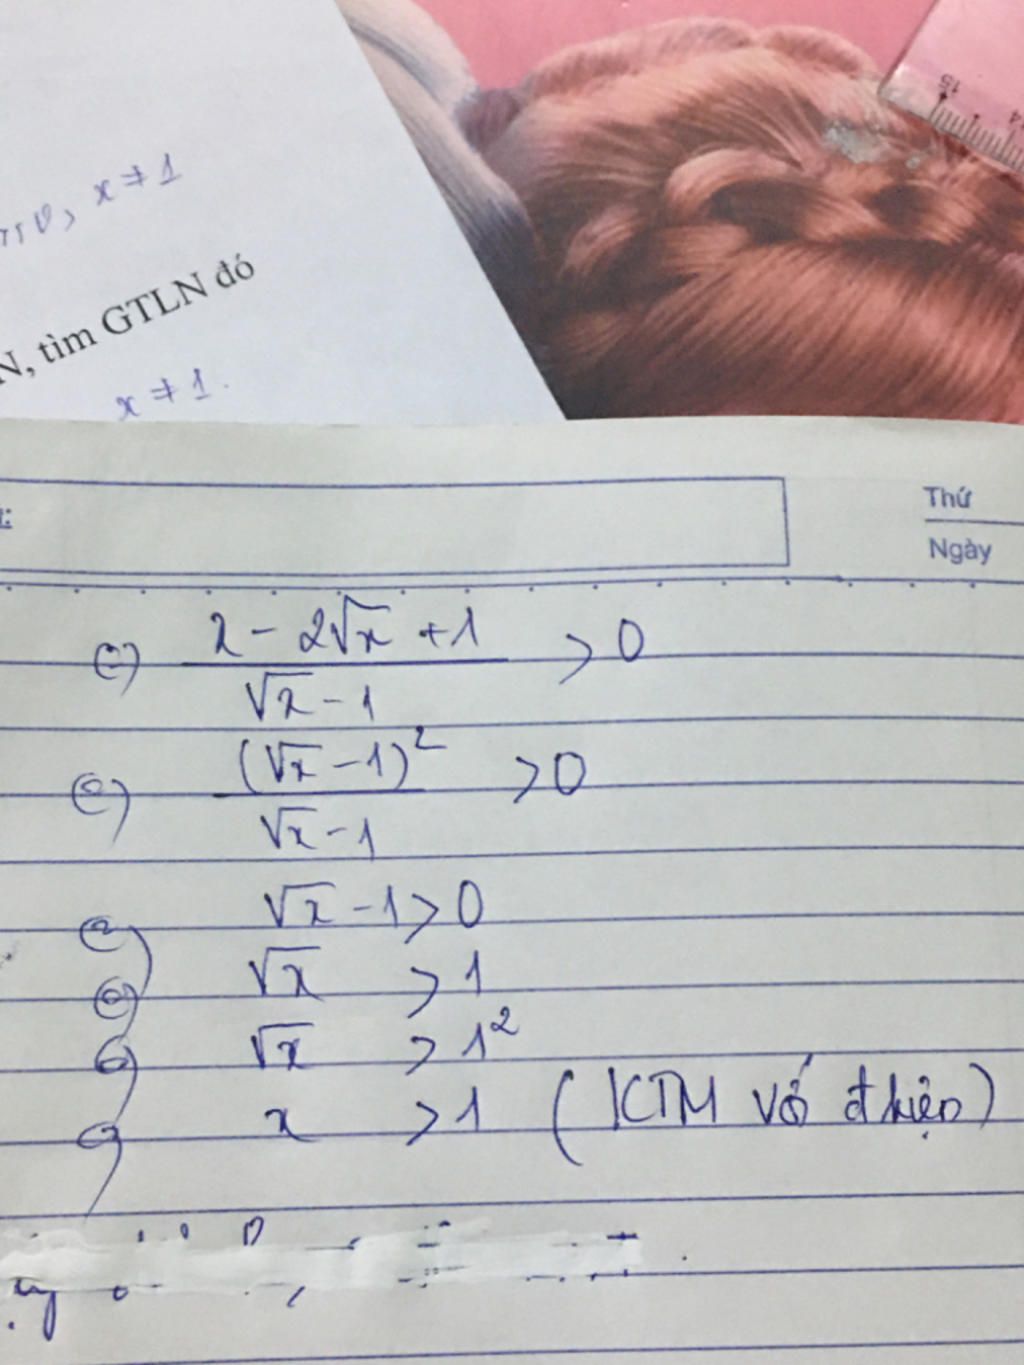 15
14
x ≠ 1
N, tìm GTLN đó
x ≠ 1.
Thứ
Ngày
⇔ (x - 2√x + 1) / (√x - 1) > 0
⇔ (√x - 1)² / (√x - 1) > 0
⇔ √x - 1 > 0
⇔ √x > 1
⇔ √x > 1²
⇔ x > 1 (KTM với đkiện)